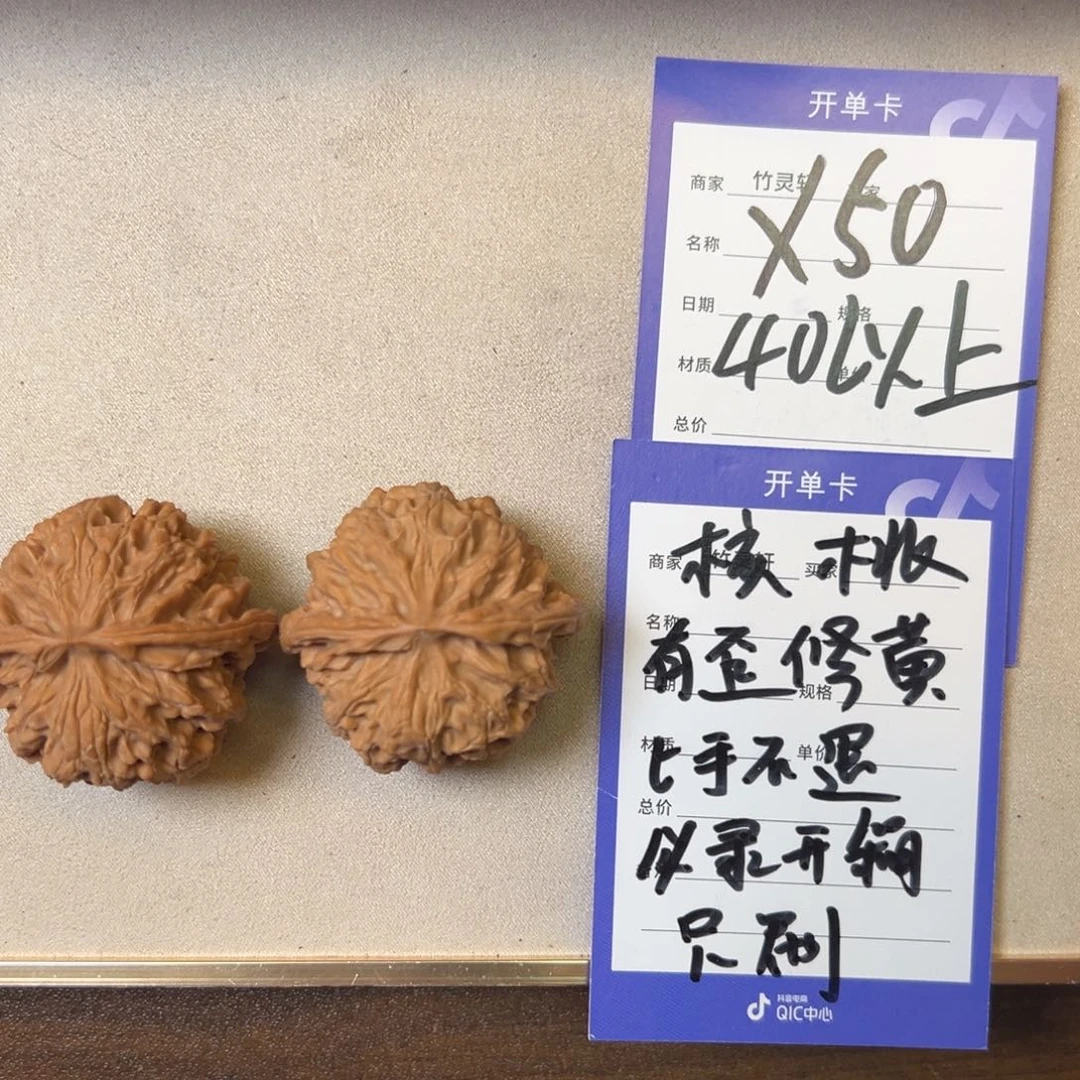 开单卡
商家 竹灵轩 家
X50
名称
日期 规格
40以上
材质 单价
总价
开单卡
商家 竹灵轩 买家
核桃
名称
有歪修黄
日期 规格
上手不退
材质 单价
总价
必录开箱
只刷
抖音电商
QIC中心